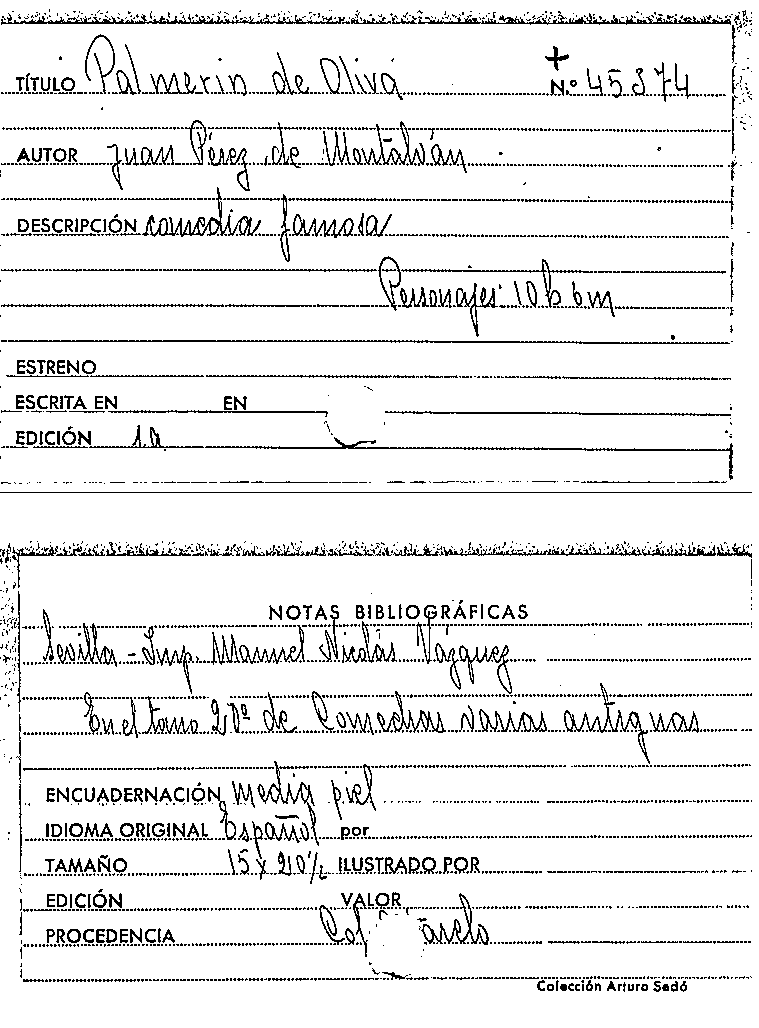 TÍTULO Palmerin de Oliva
+
N.º 45874
AUTOR Juan Pérez de Montalván
DESCRIPCIÓN comedia famosa
Personajes: 10 h 6 m
ESTRENO
ESCRITA EN EN
EDICIÓN 1a
NOTAS BIBLIOGRÁFICAS
Sevilla - Imp. Manuel Nicolás Vázquez
En el tomo de Comedias varias antiguas
ENCUADERNACIÓN media piel
IDIOMA ORIGINAL Español por
TAMAÑO 15 x ILUSTRADO POR
EDICIÓN VALOR
PROCEDENCIA
Colección Arturo Sedó